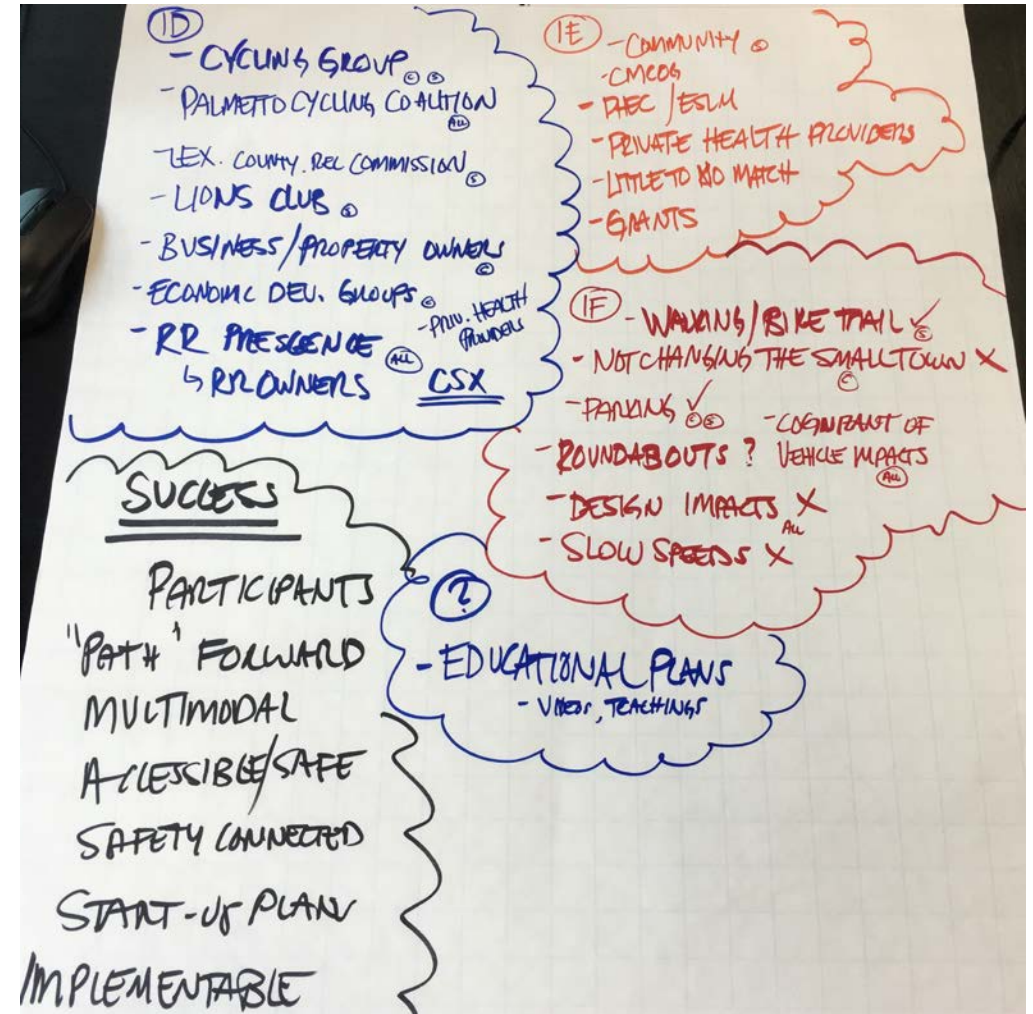 1D
- CYCLING GROUP C S
- PALMETTO CYCLING COALITION
ALL
- LEX. COUNTY. REC COMMISSION S
- LIONS CLUB S
- BUSINESS/PROPERTY OWNERS
C
- ECONOMIC DEV. GROUPS C
- PRIV. HEALTH
PROVIDERS
- RR PRESCENCE ALL
↳ RR OWNERS CSX
1E
- COMMUNITY
- CMCOG
- DHEC / ESLM
- PRIVATE HEALTH PROVIDERS
- LITTLE TO NO MATCH
- GRANTS
1F
- WALKING/BIKE TRAIL ✓
S
- NOT CHANGING THE SMALL TOWN X
C
- PARKING ✓ C S
- COGNIZANT OF
VEHICLE IMPACTS
ALL
- ROUNDABOUTS ?
- DESIGN IMPACTS X
ALL
- SLOW SPEEDS X
SUCCESS
PARTICIPANTS
"PATH" FORWARD
MULTIMODAL
ACCESSIBLE/SAFE
SAFETY CONNECTED
START-UP PLAN
IMPLEMENTABLE
?
- EDUCATIONAL PLANS
- VIDEOS, TEACHINGS